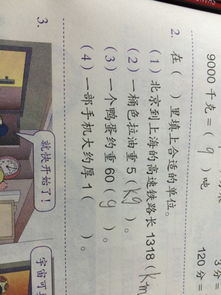 9000 千克=( 9 )吨
120 分=
2. 在( )里填上合适的单位。
(1)北京到上海的高速铁路长 1318(
(2)一桶色拉油重 5(kg)。
(3)一个鸡蛋约重 60(g)。
(4)一部手机大约厚 1( )。
3.
就快开始了!
宇宙可